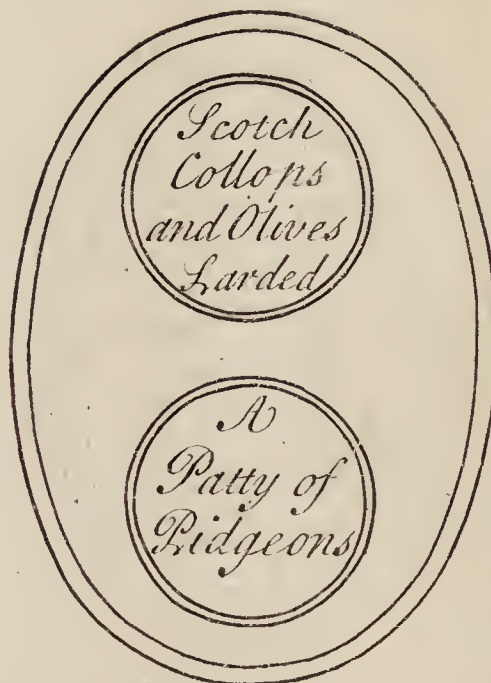 Scotch
Collops
and Olives
Larded
A
Patty of
Pidgeons